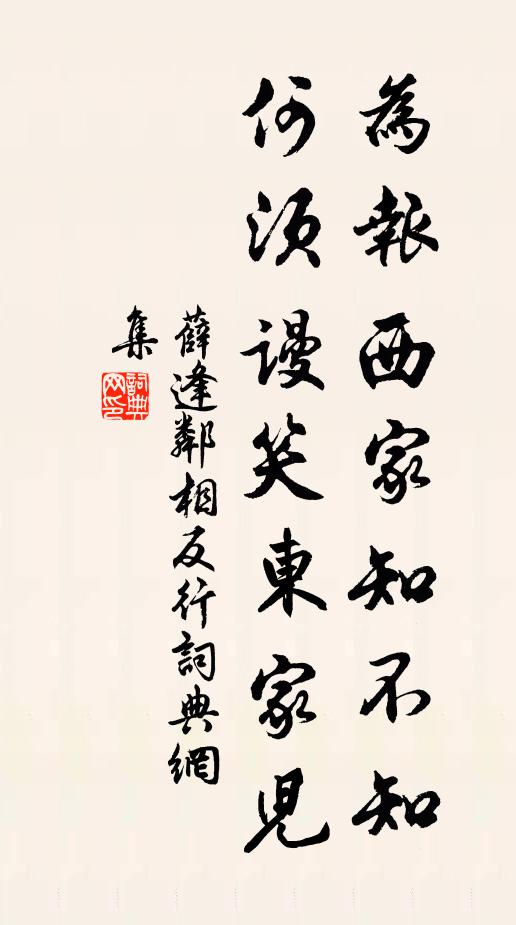 為報西家知不知
何須謾笑東家児
薛逢鄰相反行詞典網
集
詞典
网印